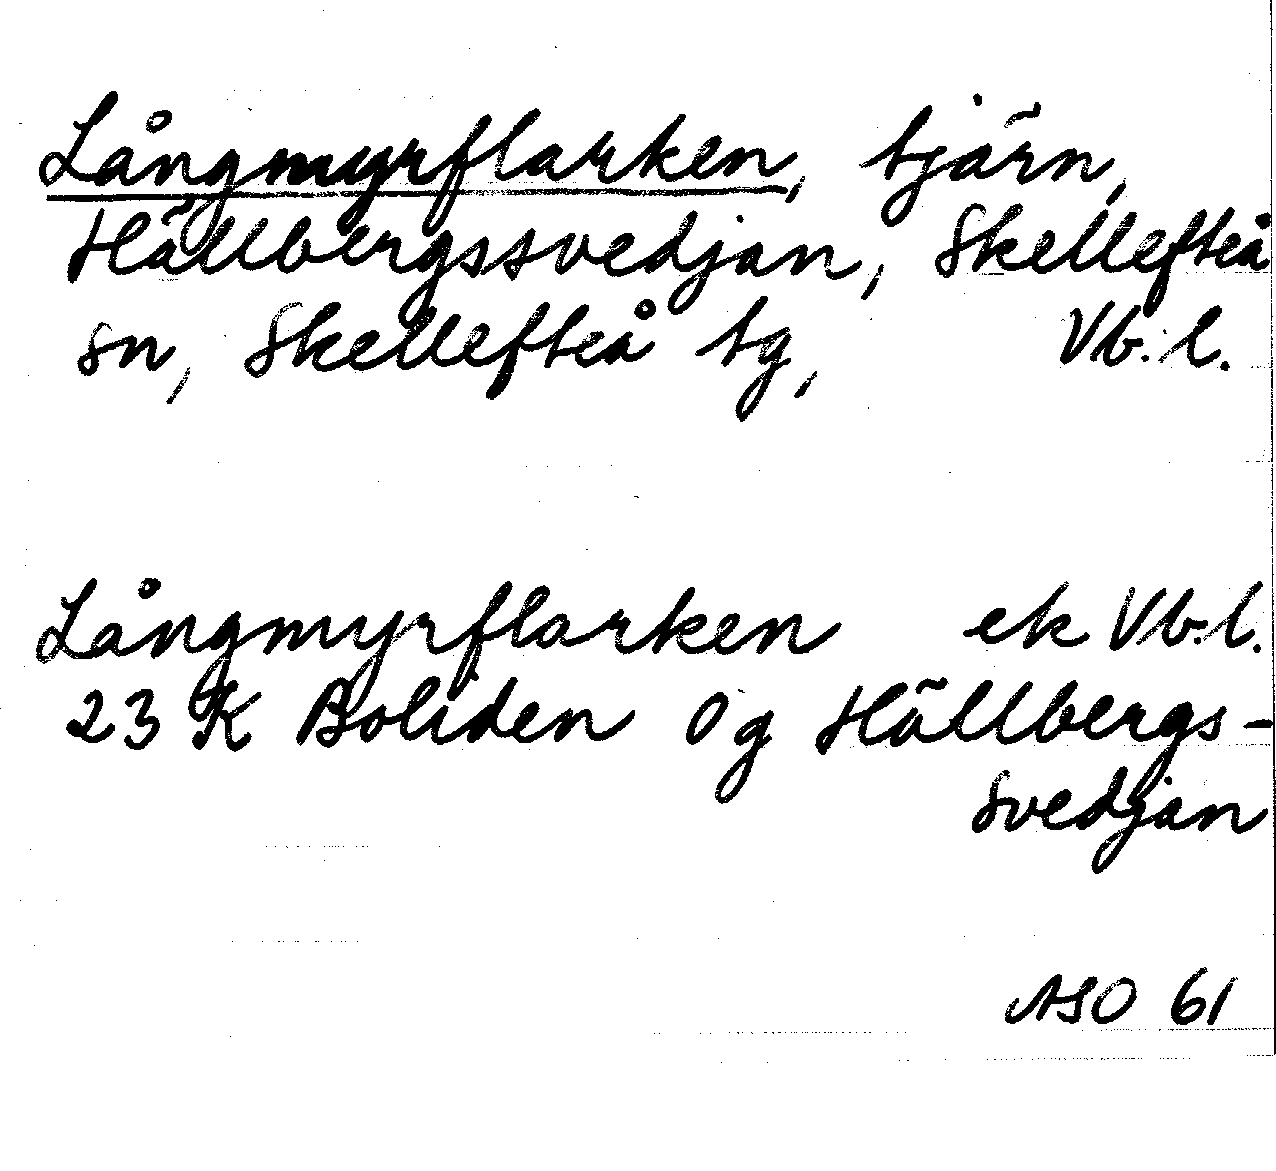 Långmyrflarken, tjärn,
Hällbergssvedjan, Skellefteå
sn, Skellefteå tg, Vb. l.
Långmyrflarken ek Vb. l.
23 K Boliden 0g Hällbergs-
svedjan
ASO 61